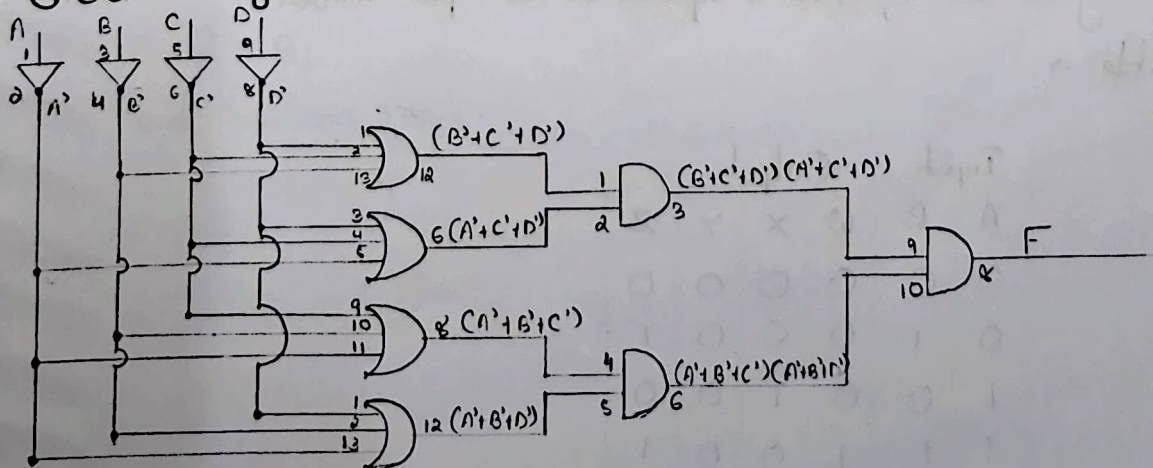 A B C D
1 3 5 9
2 A' 4 B' 6 C' 8 D'
1
2
13
12
(B'+C'+D')
3
4
5
6 (A'+C'+D')
9
10
11
8 (A'+B'+C')
1
2
13
12 (A'+B'+D')
1
2
3
(B'+C'+D')(A'+C'+D')
4
5
6
(A'+B'+C')(A'+B'+D')
9
10
8
F